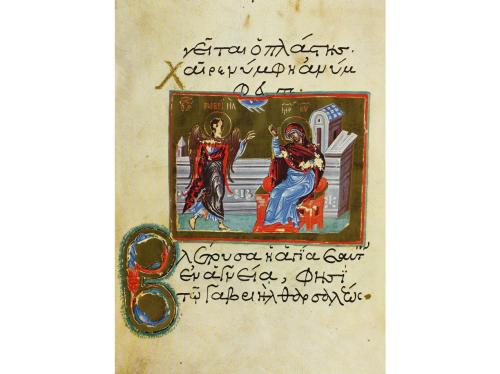 νεῖται ὁ πλάστης·
Χαῖρε νύμφη ἀνύμ
ΜΡ ΘΥ
Βλέπουσα ἡ ἁγία ἑαυτὴν
ἐν ἁγνεία, φησὶ
τῷ Γαβριὴλ θαρσαλέως·